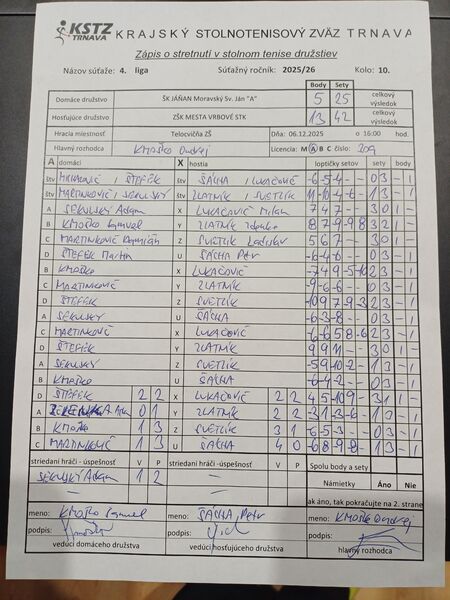 KSTZ TRNAVA KRAJSKÝ STOLNOTENISOVÝ ZVÄZ TRNAVA
Zápis o stretnutí v stolnom tenise družstiev
Názov súťaže: 4. liga Súťažný ročník: 2025/26 Kolo: 10.
Body Sety
Domáce družstvo ŠK JÁŇAN Moravský Sv. Ján "A" 5 25 celkový výsledok
Hosťujúce družstvo ZŠK MESTA VRBOVÉ STK 13 42 celkový výsledok
Hracia miestnosť Telocvičňa ZŠ Dňa: 06.12.2025 o 16:00 hod.
Hlavný rozhodca KMOŠKO Ondrej Licencia: M A B C číslo: 209
A domáci X hostia loptičky setov sety body
štv / ŠTEFEK štv ŠÁCHA / LUKAČOVIČ -6 -5 -4 - - 0 3 - 1
štv MARTINKOVIČ / SEKULSKÝ štv ZLATNÍK / SVETLÍK 1 3 - 1
A SEKULSKÝ Adam X LUKAČOVIČ Milan 7 4 7 - - 3 0 1 -
B KMOŠKO Samuel Y ZLATNÍK 8 7 -9 -9 8 3 2 1 -
C MARTINKOVIČ Z SVETLÍK Ladislav 5 6 7 - - 3 0 1 -
D ŠTEFEK Martin U ŠÁCHA Petr -6 -4 -6 - - 0 3 - 1
B KMOŠKO X LUKAČOVIČ 2 3 - 1
A Y ZLATNÍK -9 -6 -6 - - 0 3 - 1
D ŠTEFEK Z SVETLÍK 2 3 - 1
A SEKULSKÝ U ŠÁCHA -6 -3 -8 - - 0 3 - 1
C MARTINKOVIČ X LUKAČOVIČ 2 3 - 1
D ŠTEFEK Y ZLATNÍK 9 9 11 - - 3 0 1 -
A SEKULSKÝ Z SVETLÍK 1 3 - 1
B KMOŠKO U ŠÁCHA -6 -4 -2 - - 0 3 - 1
D ŠTEFEK 2 2 X LUKAČOVIČ 2 2 3 1 1 -
A 0 1 Y ZLATNÍK 2 2 1 3 - 1
B KMOŠKO 1 3 Z SVETLÍK 3 1 -6 -5 -3 - - 0 3 - 1
C MARTINKOVIČ 1 3 U ŠÁCHA 4 0 1 3 - 1
striedaní hráči - úspešnosť V P striedaní hráči - úspešnosť V P Spolu body a sety
SEKULSKÝ Adam 1 2 Námietky Áno Nie
ak áno, tak pokračujte na 2. strane
meno: KMOŠKO Samuel meno: ŠÁCHA, Petr meno: KMOŠKO Ondrej
podpis: podpis: podpis:
vedúci domáceho družstva vedúci hosťujúceho družstva hlavný rozhodca